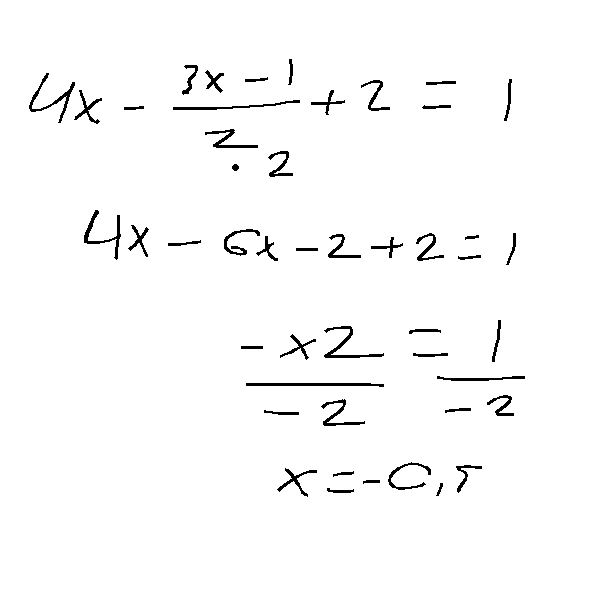 4x - \frac{3x - 1}{2} + 2 = 1
· 2
4x - 6x - 2 + 2 = 1
\frac{-x2}{-2} = \frac{1}{-2}
x = -0,5